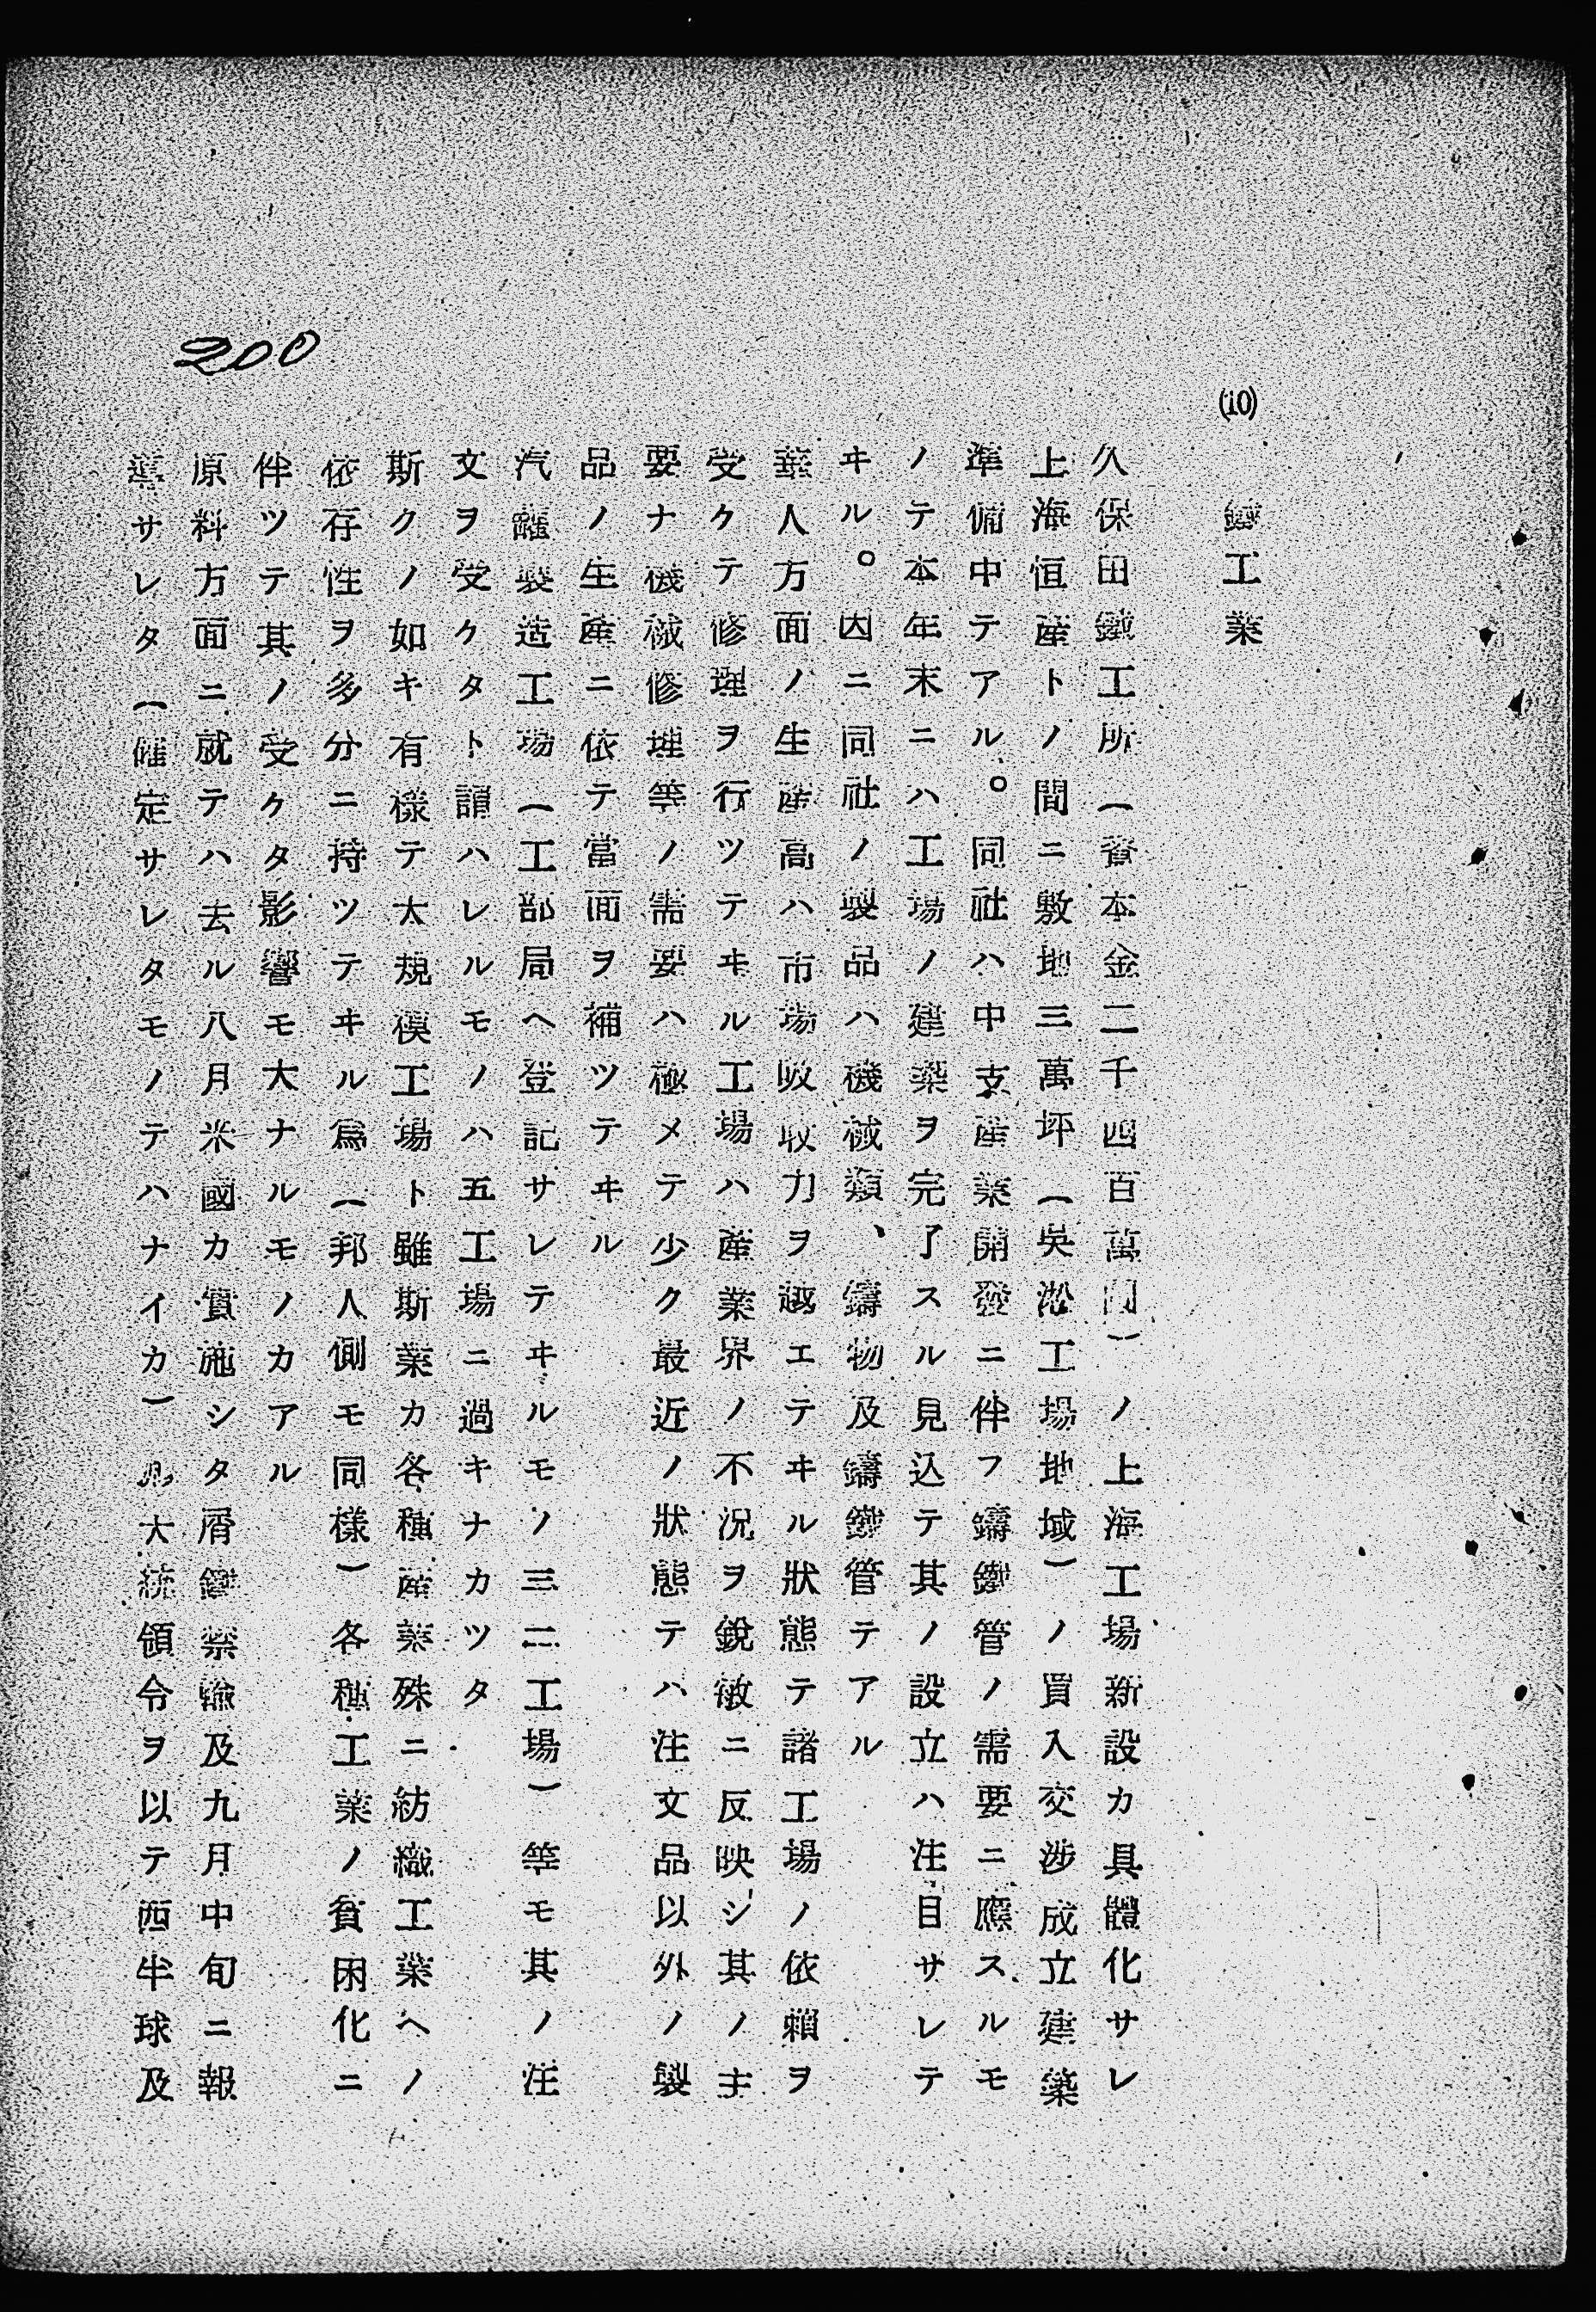 200
(10) 鐵工業
久保田鐵工所(資本金二千四百萬圓)ノ上海工場新設カ具體化サレ
上海恒產トノ間ニ敷地三萬坪(吳淞工場地域)ノ買入交涉成立建築
準備中テアル。同社ハ中支產業開發ニ伴フ鑄鐵管ノ需要ニ應スルモ
ノテ本年末ニハ工場ノ建築ヲ完了スル見込テ其ノ設立ハ注目サレテ
ヰル。因ニ同社ノ製品ハ機械類、鑄物及鑄鐵管テアル
華人方面ノ生產高ハ市場吸收力ヲ越エテヰル狀態テ諸工場ノ依賴ヲ
受ケテ修理ヲ行ツテヰル工場ハ產業界ノ不況ヲ銳敏ニ反映シ其ノ主
要ナ機械修理等ノ需要ハ極メテ少ク最近ノ狀態テハ注文品以外ノ製
品ノ生產ニ依テ當面ヲ補ツテヰル
汽罐製造工場(工部局ヘ登記サレテヰルモノ三二工場)等モ其ノ注
文ヲ受ケタト謂ハレルモノハ五工場ニ過キナカツタ
斯クノ如キ有樣テ大規模工場ト雖斯業カ各種產業殊ニ紡織工業ヘノ
依存性ヲ多分ニ持ツテヰル爲(邦人側モ同樣)各種工業ノ貧困化ニ
伴ツテ其ノ受ケタ影響モ大ナルモノカアル
原料方面ニ就テハ去ル八月米國カ實施シタ屑鐵禁輸及九月中旬ニ報
導サレタ(確定サレタモノテハナイカ)大統領令ヲ以テ西半球及